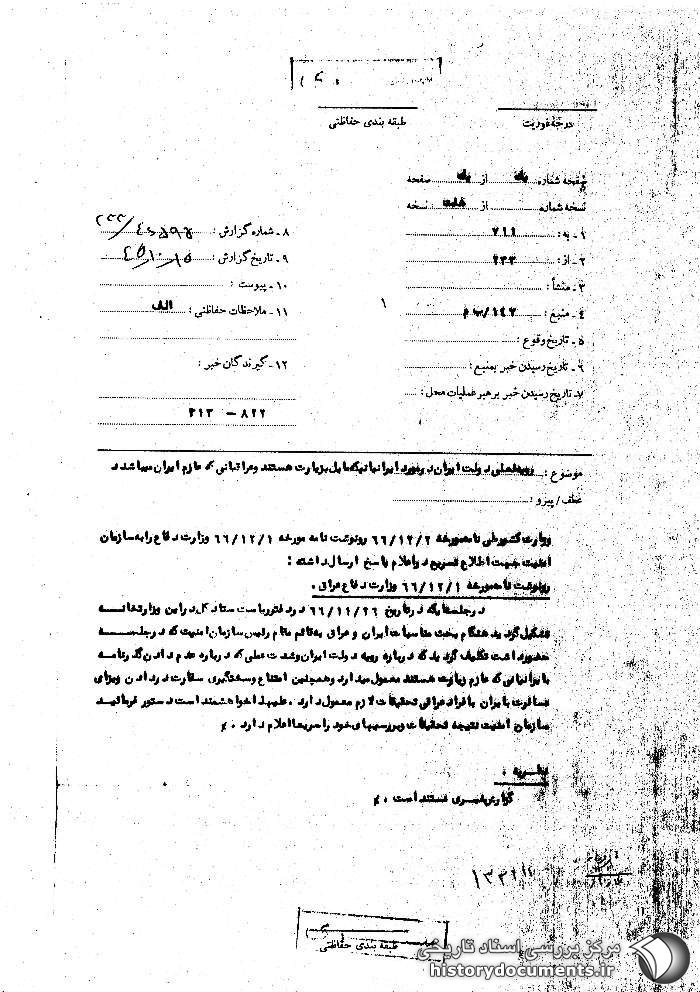 طبقه بندی حفاظتی
درجه فوریت
صفحه شماره یک از یک صفحه
نسخه شماره از هشت نسخه
۱ - به : ۷۱۱
۲ - از : ۲۳۳
۳ - منشأ :
۴ - منبع :
۵ - تاریخ وقوع :
۶ - تاریخ رسیدن خبر بمنبع :
۷ - تاریخ رسیدن خبر برهبر عملیات محل :
۸ - شماره گزارش :
۹ - تاریخ گزارش :
۱۰ - پیوست :
۱۱ - ملاحظات حفاظتی : الف
۱۲ - گیرندگان خبر :
۸۲۲ – ۲۱۳
موضوع : دولت ایران در مورد ایرانیانیکه مایل بزیارت هستند و عراقیانی که عازم ایران میباشند
عطف / پیرو :
وزارت کشور طی نامه مورخه ۶۶/۱۲/۲ رونوشت نامه مورخه ۶۶/۱۲/۱ وزارت دفاع را به سازمان
امنیت جهت اطلاع تسریع در اعلام پاسخ ارسال داشته :
رونوشت نامه مورخه ۶۶/۱۲/۱ وزارت دفاع عراق .
در جلسه ایکه در تاریخ ۶۶/۱۱/۲۶ در دفتر ریاست ستاد کل در این وزارتخانه
تشکیل گردید هنگام بحث مناسبات ایران و عراق به قائم مقام رئیس سازمان امنیت که در جلسه
حضور داشت تکلیف گردید که درباره رویه دولت ایران و شدت عملی که درباره عدم دادن گذرنامه
بایرانیانی که عازم زیارت هستند معمول میدارد و همچنین امتناع و سختگیری سفارت در دادن ویزای
مسافرت بایران بافراد عراقی تحقیقات لازم معمول دارد . علیهذا خواهشمند است دستور فرمائید
سازمان امنیت نتیجه تحقیقات و بررسیهای خود را سریعا اعلام دارد .
نظریه .
گزارش خبری مستند است .
طبقه بندی حفاظتی
مرکز بررسی اسناد تاریخی
historydocuments.ir